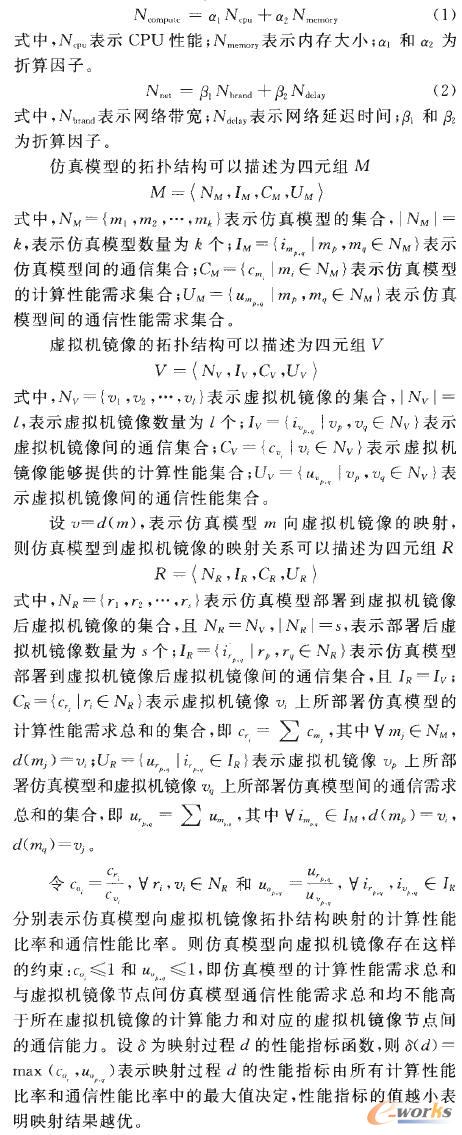 N_compute = α₁N_cpu + α₂N_memory (1)
式中,N_cpu表示 CPU 性能;N_memory表示内存大小;α₁ 和 α₂ 为
折算因子。
N_net = β₁N_brand + β₂N_delay (2)
式中,N_brand表示网络带宽;N_delay表示网络延迟时间;β₁ 和 β₂
为折算因子。
仿真模型的拓扑结构可以描述为四元组 M
M = ⟨N_M, I_M, C_M, U_M⟩
式中,N_M={m₁,m₂,…,m_k}表示仿真模型的集合,|N_M|=
k,表示仿真模型数量为 k 个;I_M={i_{m_{p,q}}|m_p,m_q∈N_M}表示
仿真模型间的通信集合;C_M={c_{m_i}|m_i∈N_M}表示仿真模型
的计算性能需求集合;U_M={u_{m_{p,q}}|m_p,m_q∈N_M}表示仿真
模型间的通信性能需求集合。
虚拟机镜像的拓扑结构可以描述为四元组 V
V = ⟨N_V, I_V, C_V, U_V⟩
式中,N_V={v₁,v₂,…,v_l}表示虚拟机镜像的集合,|N_V|=
l,表示虚拟机镜像数量为 l 个;I_V={i_{v_{p,q}}|v_p,v_q∈N_V}表示
虚拟机镜像间的通信集合;C_V={c_{v_i}|v_i∈N_V}表示虚拟机
镜像能够提供的计算性能集合;U_V={u_{v_{p,q}}|v_p,v_q∈N_V}表
示虚拟机镜像间的通信性能集合。
设 v=d(m),表示仿真模型 m 向虚拟机镜像的映射,
则仿真模型到虚拟机镜像的映射关系可以描述为四元组 R
R = ⟨N_R, I_R, C_R, U_R⟩
式中,N_R={r₁,r₂,…,r_s}表示仿真模型部署到虚拟机镜像
后虚拟机镜像的集合,且 N_R=N_V,|N_R|=s,表示部署后虚
拟机镜像数量为 s 个;I_R={i_{r_{p,q}}|r_p,r_q∈N_R}表示仿真模型
部署到虚拟机镜像后虚拟机镜像间的通信集合,且 I_R=I_V;
C_R={c_{r_i}|r_i∈N_R}表示虚拟机镜像 v_i 上所部署仿真模型的
计算性能需求总和的集合,即 c_{r_i}=∑c_{m_j},其中∀m_j∈N_M,
d(m_j)=v_i;U_R={u_{r_{p,q}}|i_{r_{p,q}}∈I_R}表示虚拟机镜像 v_p 上所部
署仿真模型和虚拟机镜像 v_q 上所部署仿真模型间的通信需求
总和的集合,即 u_{r_{p,q}}=∑u_{m_{p,q}},其中 ∀i_{m_{p,q}}∈I_M,d(m_p)=v_i,
d(m_q)=v_j。
令 c_{o_i}=c_{r_i}/c_{v_i},∀r_i,v_i∈N_R 和 u_{o_{p,q}}=u_{r_{p,q}}/u_{v_{p,q}},∀i_{r_{p,q}},i_{v_{p,q}}∈I_R
分别表示仿真模型向虚拟机镜像拓扑结构映射的计算性能
比率和通信性能比率。则仿真模型向虚拟机镜像存在这样
的约束:c_{o_i}≤1 和 u_{o_{p,q}}≤1,即仿真模型的计算性能需求总和
与虚拟机镜像节点间仿真模型通信性能需求总和均不能高
于所在虚拟机镜像的计算能力和对应的虚拟机镜像节点间
的通信能力。设 δ 为映射过程 d 的性能指标函数,则 δ(d)=
max (c_{o_i},u_{o_{p,q}})表示映射过程 d 的性能指标由所有计算性能
比率和通信性能比率中的最大值决定,性能指标的值越小表
明映射结果越优。
e-works